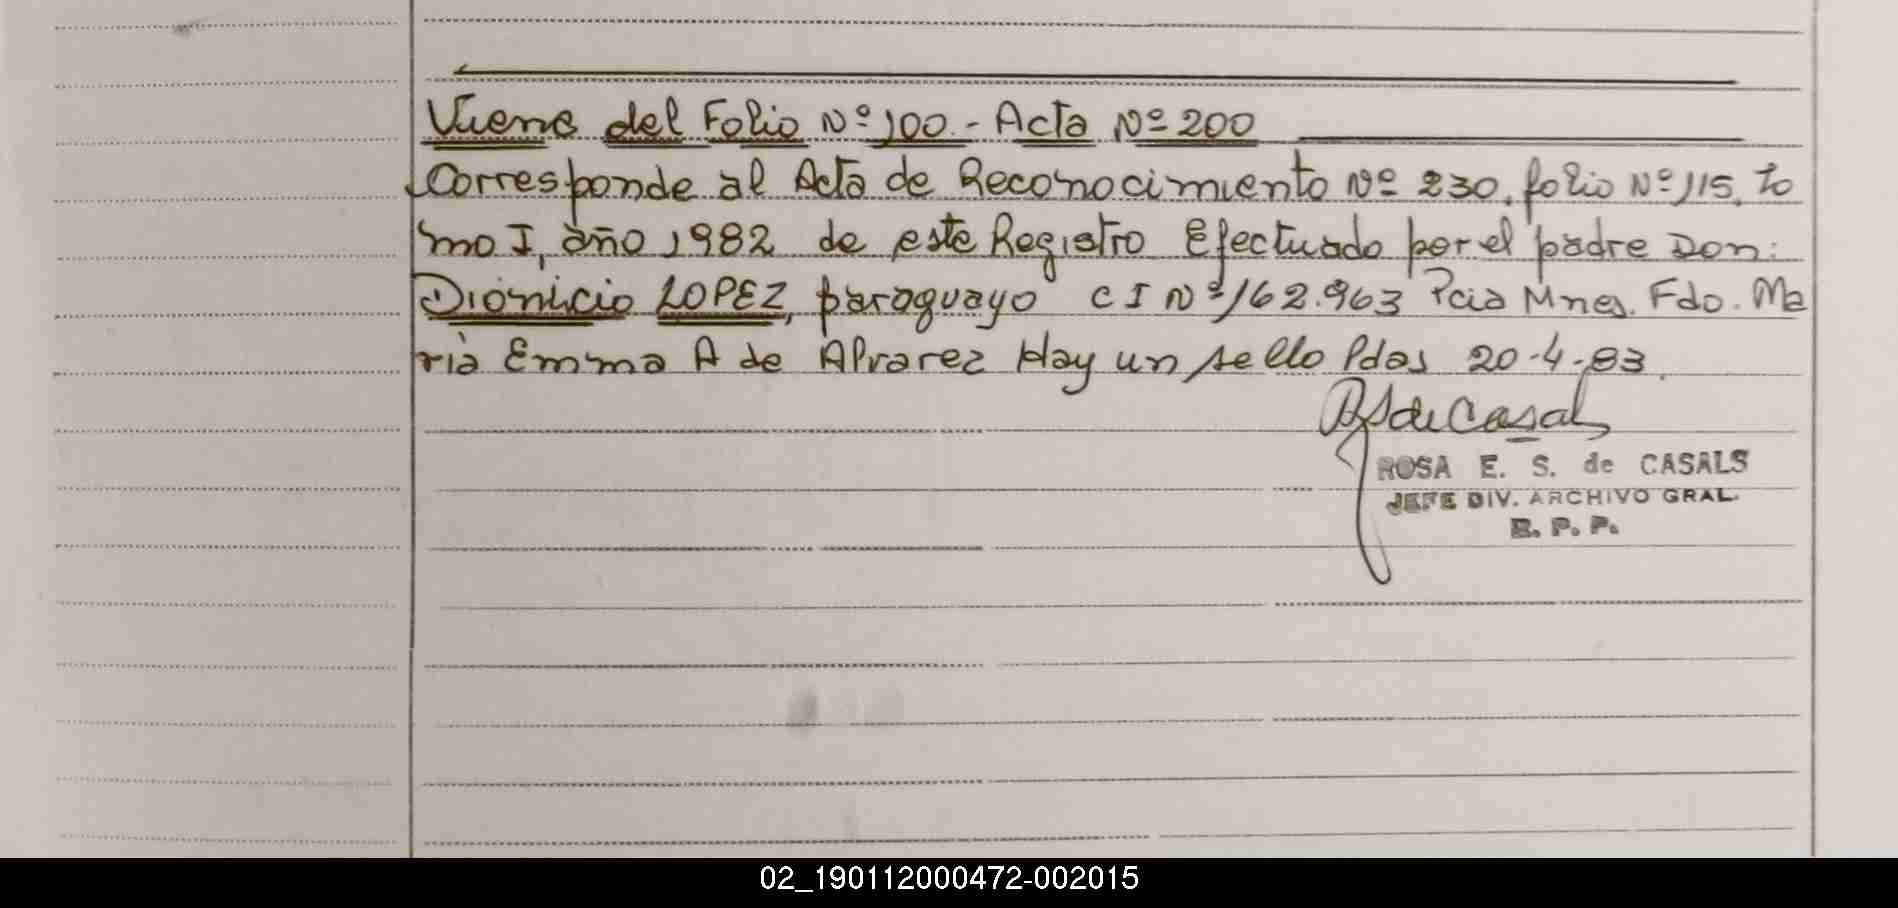 Viene del Folio Nº 100.- Acta Nº 200
Corresponde al Acta de Reconocimiento Nº 230, folio Nº 115, to
mo I, año 1982 de este Registro Efectuado por el padre Don:
Dionicio LOPEZ, paraguayo C I Nº 162.963 Pcia Mnes. Fdo. Ma
ria Emma A de Alvarez Hay un sello Pdas 20-4-83.
RS de Casals
ROSA E. S. de CASALS
JEFE DIV. ARCHIVO GRAL.
R. P. P.
02_190112000472-002015